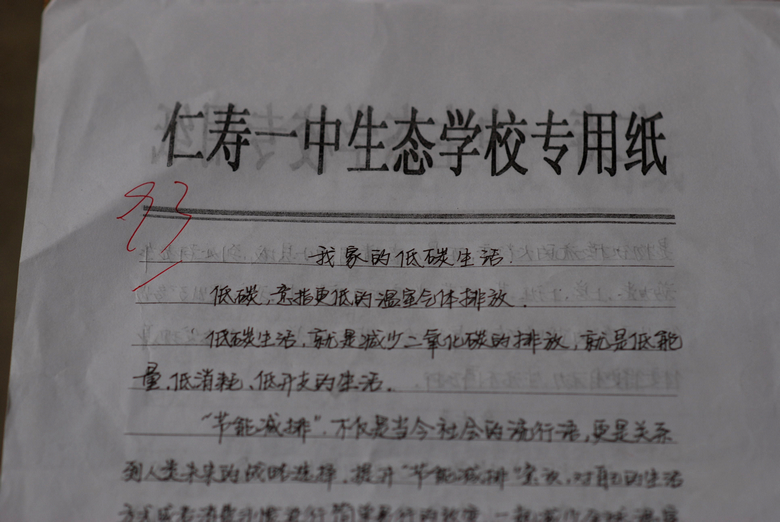 仁寿一中生态学校专用纸
93
我家的低碳生活.
低碳,意指更低的温室气体排放.
"低碳生活,就是减少二氧化碳的排放,就是低能
量,低消耗,低开支的生活.
"节能减排",不仅是当今社会的流行语,更是关系
到人类未来的战略选择,提升"节能减排"意识,对自己的生活
方式或者消费习惯进行简单易行的改变,一起减少全球温室